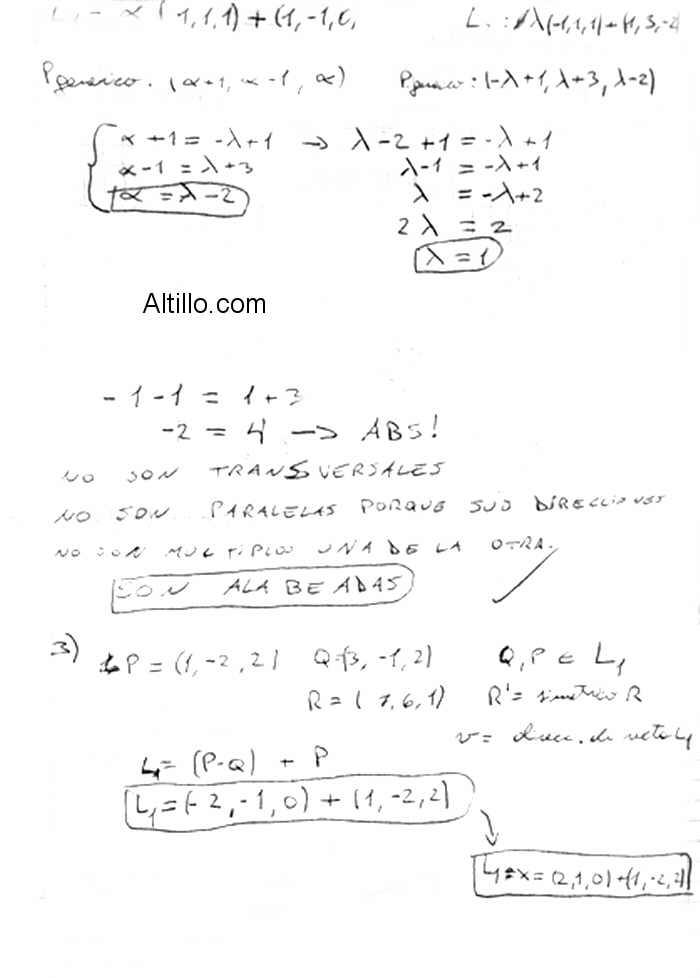 L₁ = α(1,1,1) + (1,-1,0,
L : λ(-1,1,1)+(1,3,-2
Pgenerico. (α+1, α-1, α)
Pgenerico : (-λ+1, λ+3, λ-2)
α+1 = -λ+1 → λ-2+1 = -λ+1
α-1 = λ+3 λ-1 = -λ+1
α = λ-2 λ = -λ+2
2λ = 2
λ = 1
Altillo.com
-1-1 = 1+3
-2 = 4 → ABS!
NO SON TRANSVERSALES
NO SON PARALELAS PORQUE SUS DIRECCIONES
NO SON MULTIPLOS UNA DE LA OTRA.
SON ALABEADAS
3) P = (1,-2,2) Q=(3,-1,2) Q,P ∈ L₁
R = (7,6,1) R' = simetrico R
v = direc. de recta L₁
L₁ = (P-Q) + P
L₁ = (-2,-1,0) + (1,-2,2)
L₁ = x = (2,1,0)+(1,-2,2)